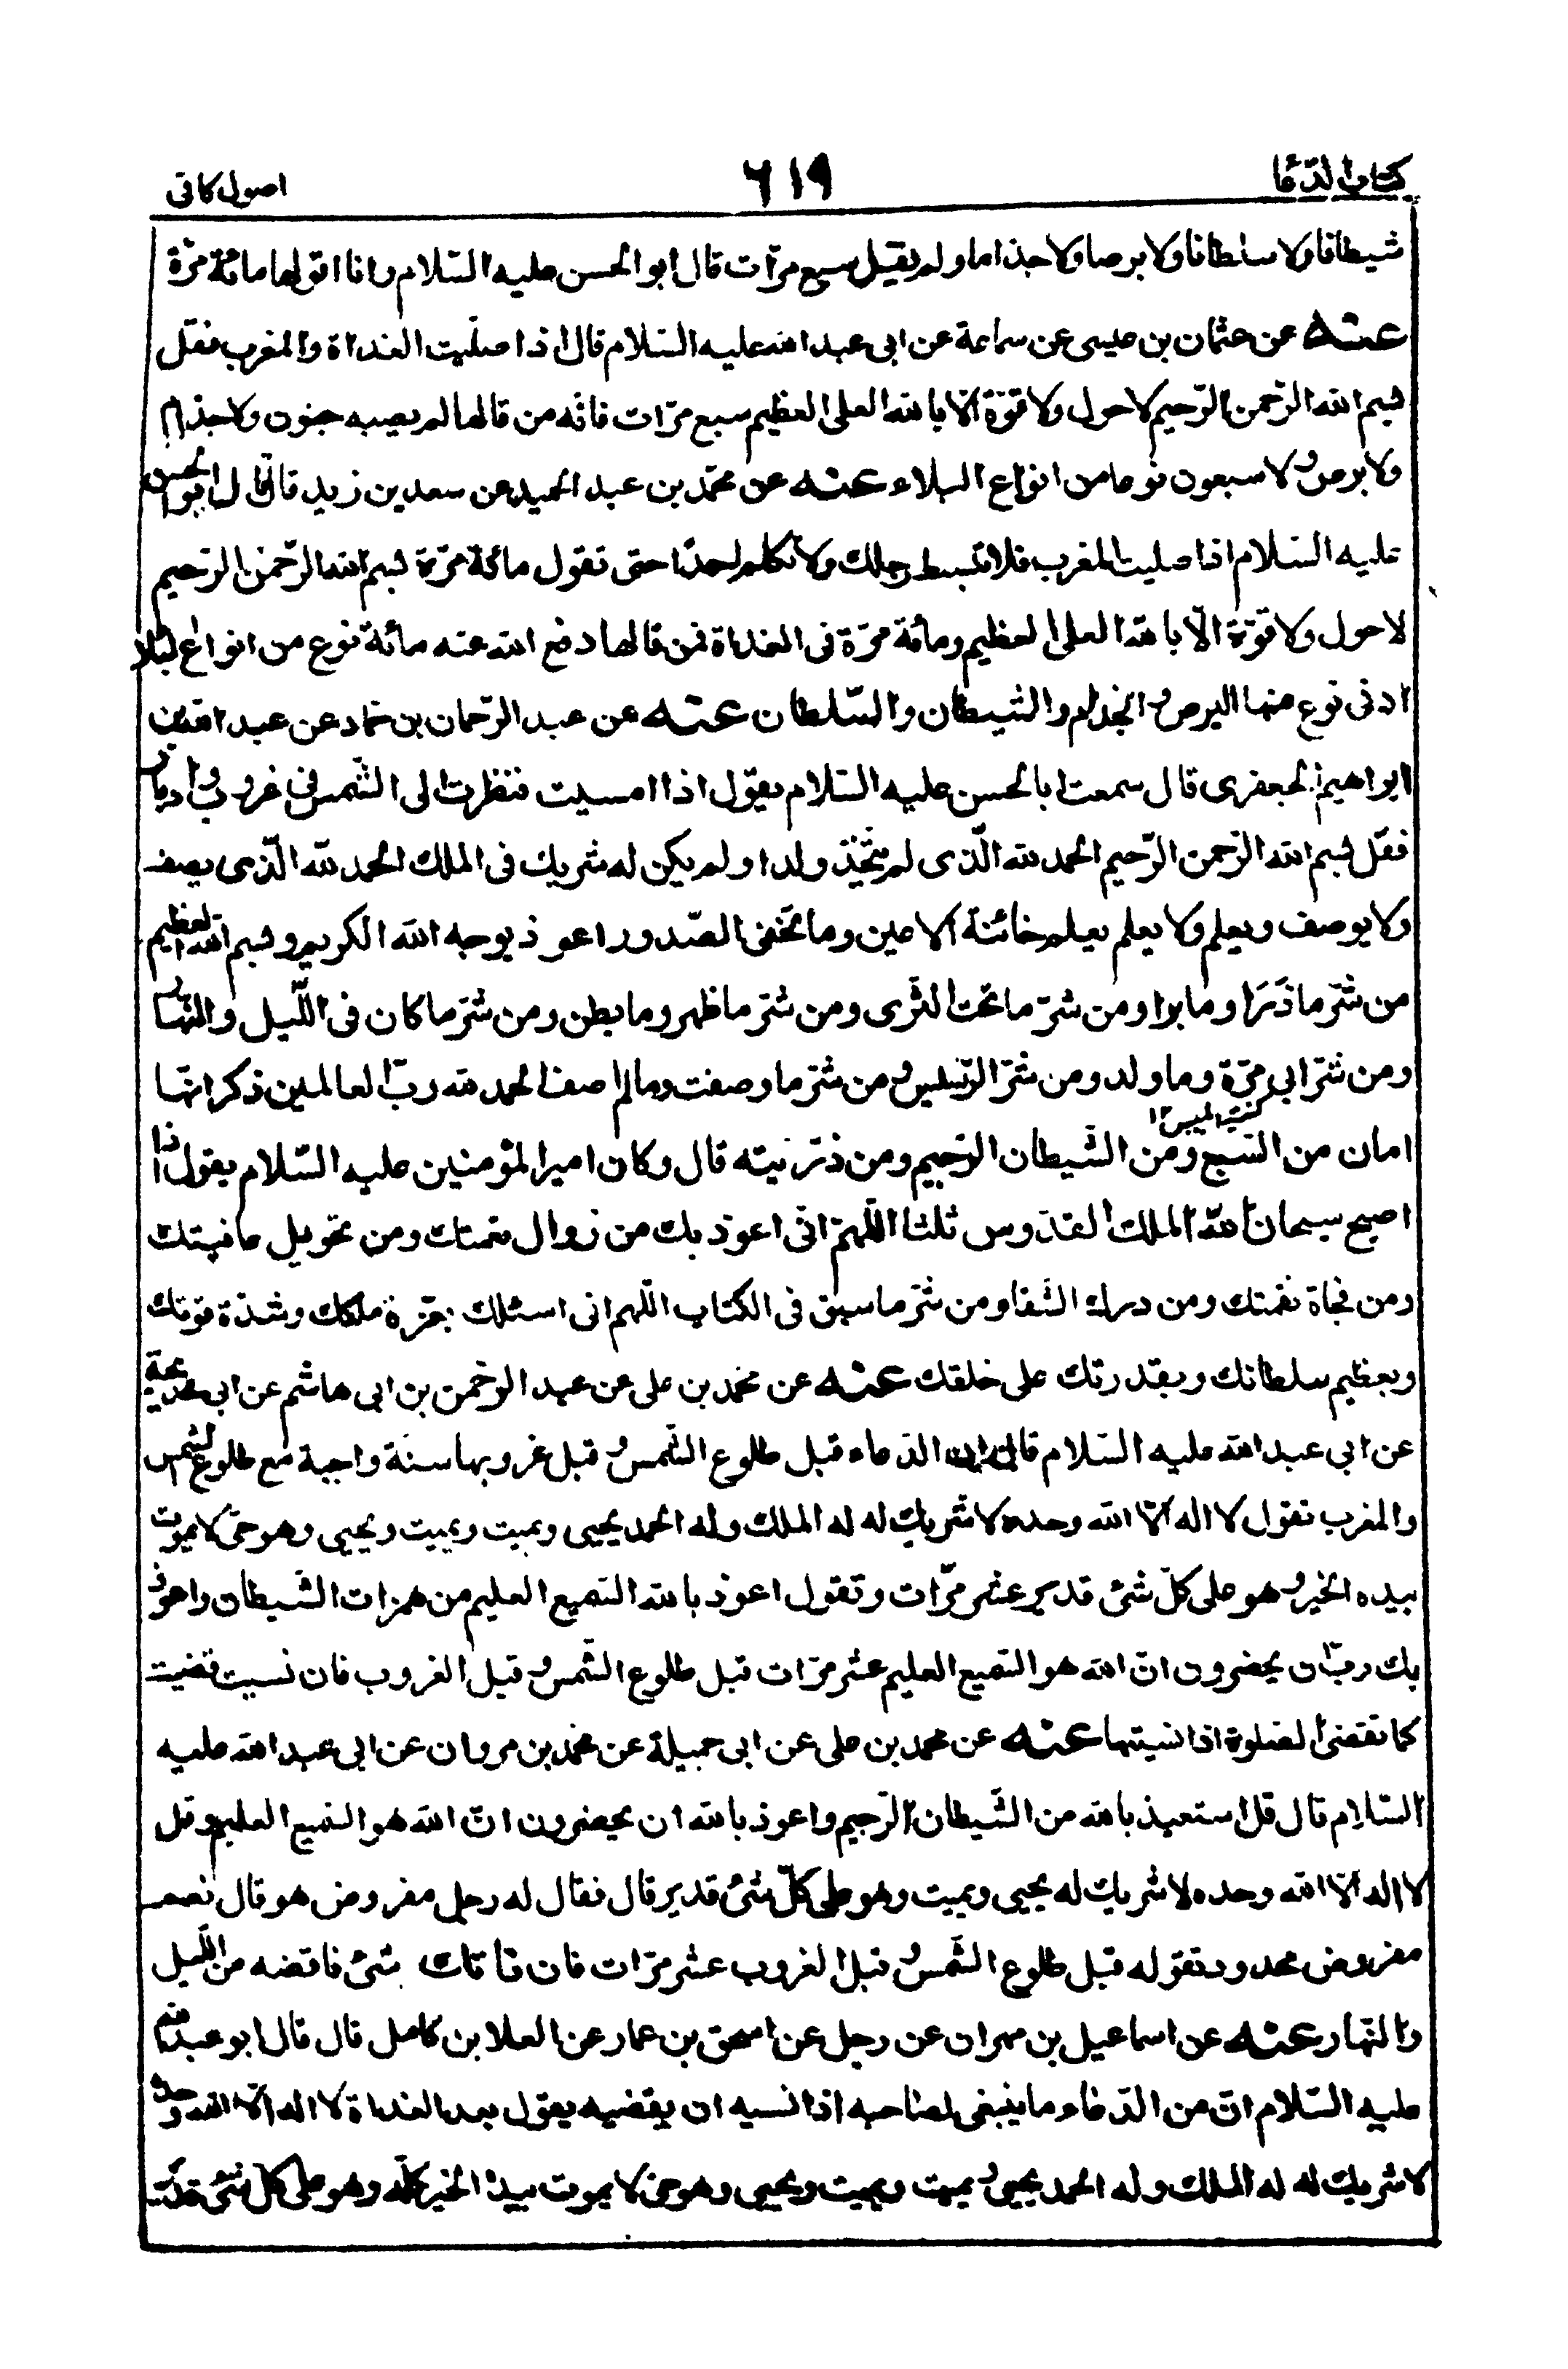 كتاب الدعا ٦١٩ اصول كافى
شيطانا ولا سلطانا ولا برصا ولا جذاما ولم يقل سبع مرّات قال ابو الحسن عليه السّلام وانا اقولها مائة مرّة
عنه عن عثمان بن عيسى عن سماعة عن ابى عبد الله عليه السّلام قال اذا صلّيت الغداة والمغرب فقل
بسم الله الرّحمن الرّحيم لا حول ولا قوّة الّا بالله العلى العظيم سبع مرّات فانّه من قالها لم يصبه جنون ولا جذام
ولا برص ولا سبعون نوعا من انواع البلاء عنه عن محمّد بن عبد الحميد عن سعد بن زيد قال قال ابو الحسن
عليه السّلام اذا صليت المغرب فلا تبسط رجلك ولا تكلم احدًا حتى تقول مائة مرّة بسم الله الرّحمن الرّحيم
لا حول ولا قوّة الّا بالله العلى العظيم ومائة مرّة فى الغداة فمن قالها دفع الله عنه مائة نوع من انواع البلا
ادنى نوع منها البرص والجذام والشيطان والسّلطان عنه عن عبد الرّحمان بن حماد عن عبد الله بن
ابراهيم الجعفرى قال سمعت ابا الحسن عليه السّلام يقول اذا امسيت فنظرت الى الشّمس فى غروب وادبار
فقل بسم الله الرّحمن الرّحيم الحمد لله الّذى لم يتّخذ ولدا ولم يكن له شريك فى الملك الحمد لله الّذى يصف
ولا يوصف ويعلم ولا يعلم يعلم خائنة الاعين وما تخفى الصّدور اعوذ بوجه الله الكريم وبسم الله العظيم
من شرّ ما ذَرَا وما برا ومن شرّ ما تحت الثرى ومن شرّ ما ظهر وما بطن ومن شرّ ما كان فى اللّيل والنّهار
ومن شرّ ابى مرّة وما ولد ومن شرّ الرّسيس ومن شرّ ما وصفت وما لم اصف الحمد لله ربّ العالمين ذكر انّها
كنية ابليس ١٢
امان من السّبع ومن الشّيطان الرّجيم ومن ذرّيته قال وكان امير المؤمنين عليه السّلام يقول اذا
اصبح سبحان الله الملك القدّوس ثلثا اللّهمّ انّى اعوذ بك من زوال نعمتك ومن تحويل عافيتك
ومن فجاة نقمتك ومن درك الشّقا ومن شرّ ما سبق فى الكتاب اللّهم انى اسئلك بعزّة ملكك وشدّة قوّتك
وبعظيم سلطانك وبقدرتك على خلقك عنه عن محمد بن على عن عبد الرّحمن بن ابى هاشم عن ابى خديجة
عن ابى عبد الله عليه السّلام قال ان الدّعاء قبل طلوع الشّمس وقبل غروبها سنّة واجبة مع طلوع الشمس
والمغرب تقول لا اله الّا الله وحده لا شريك له له الملك وله الحمد يحيى ويميت ويميت ويحيى وهو حىّ لا يموت
بيده الخير وهو على كلّ شئ قدير عشر مرّات وتقول اعوذ بالله السّميع العليم من همزات الشّيطان واعوذ
بك ربّ ان يحضرون انّ الله هو السّميع العليم عشر مرّات قبل طلوع الشّمس وقبل الغروب فان نسيت قضيت
كما تقضى الصّلوة اذا نسيتها عنه عن محمد بن على عن ابى جميلة عن محمّد بن مروان عن ابى عبد الله عليه
السّلام قال قل استعيذ بالله من الشّيطان الرّجيم واعوذ بالله ان يحضرون انّ الله هو السّميع العليم وقل
لا اله الّا الله وحده لا شريك له يحيى ويميت وهو على كلّ شئ قدير قال فقال له رجل مفروض هو قال نعم
مفروض محدود تقوله قبل طلوع الشّمس وقبل الغروب عشر مرّات فان فاتك شئ فاقضه من اللّيل
والنّهار عنه عن اسماعيل بن مهران عن رجل عن اسحق بن عمار عن العلا بن كامل قال قال ابو عبد الله
عليه السّلام انّ من الدّعاء ما ينبغى لصاحبه اذا نسيه ان يقضيه يقول بعد الغداة لا اله الّا الله وحده
لا شريك له له الملك وله الحمد يحيى ويميت ويميت ويحيى وهو حىّ لا يموت بيده الخير كلّه وهو على كل شئ قدير